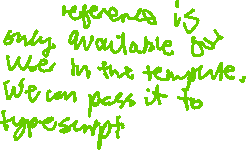 reference is
only available for
use in the template.
We can pass it to
typescript